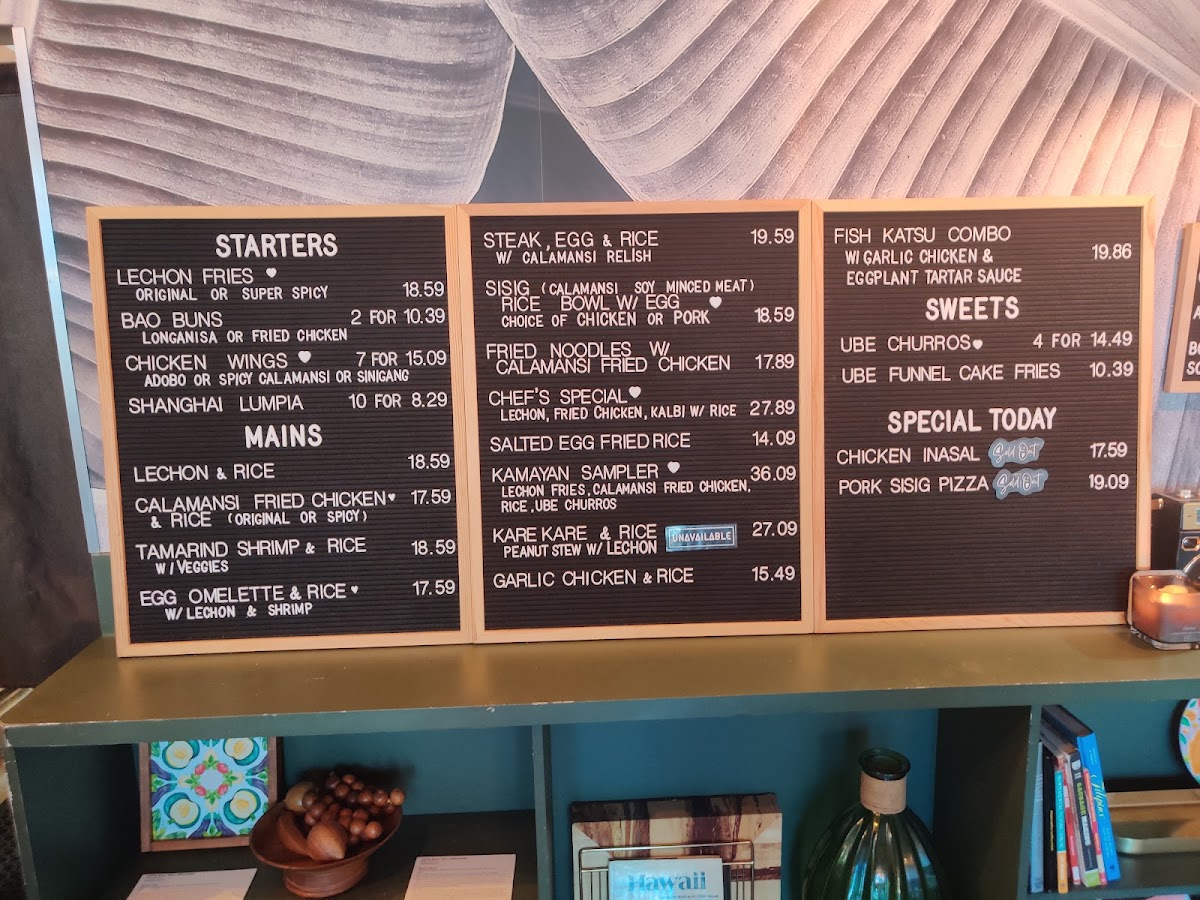 STARTERS
LECHON FRIES ♥
ORIGINAL OR SUPER SPICY 18.59
BAO BUNS 2 FOR 10.39
LONGANISA OR FRIED CHICKEN
CHICKEN WINGS ♥ 7 FOR 15.09
ADOBO OR SPICY CALAMANSI OR SINIGANG
SHANGHAI LUMPIA 10 FOR 8.29
MAINS
LECHON & RICE 18.59
CALAMANSI FRIED CHICKEN ♥ 17.59
& RICE (ORIGINAL OR SPICY)
TAMARIND SHRIMP & RICE 18.59
W/VEGGIES
EGG OMELETTE & RICE ♥ 17.59
W/ LECHON & SHRIMP
STEAK, EGG & RICE 19.59
W/ CALAMANSI RELISH
SISIG (CALAMANSI SOY MINCED MEAT)
RICE BOWL W/ EGG ♥
CHOICE OF CHICKEN OR PORK 18.59
FRIED NOODLES W/
CALAMANSI FRIED CHICKEN 17.89
CHEF'S SPECIAL ♥
LECHON, FRIED CHICKEN, KALBI W/ RICE 27.89
SALTED EGG FRIED RICE 14.09
KAMAYAN SAMPLER ♥ 36.09
LECHON FRIES, CALAMANSI FRIED CHICKEN,
RICE, UBE CHURROS
KARE KARE & RICE UNAVAILABLE 27.09
PEANUT STEW W/ LECHON
GARLIC CHICKEN & RICE 15.49
FISH KATSU COMBO
W/ GARLIC CHICKEN & 19.86
EGGPLANT TARTAR SAUCE
SWEETS
UBE CHURROS ♥ 4 FOR 14.49
UBE FUNNEL CAKE FRIES 10.39
SPECIAL TODAY
CHICKEN INASAL Sold Out 17.59
PORK SISIG PIZZA Sold Out 19.09
Hawaii